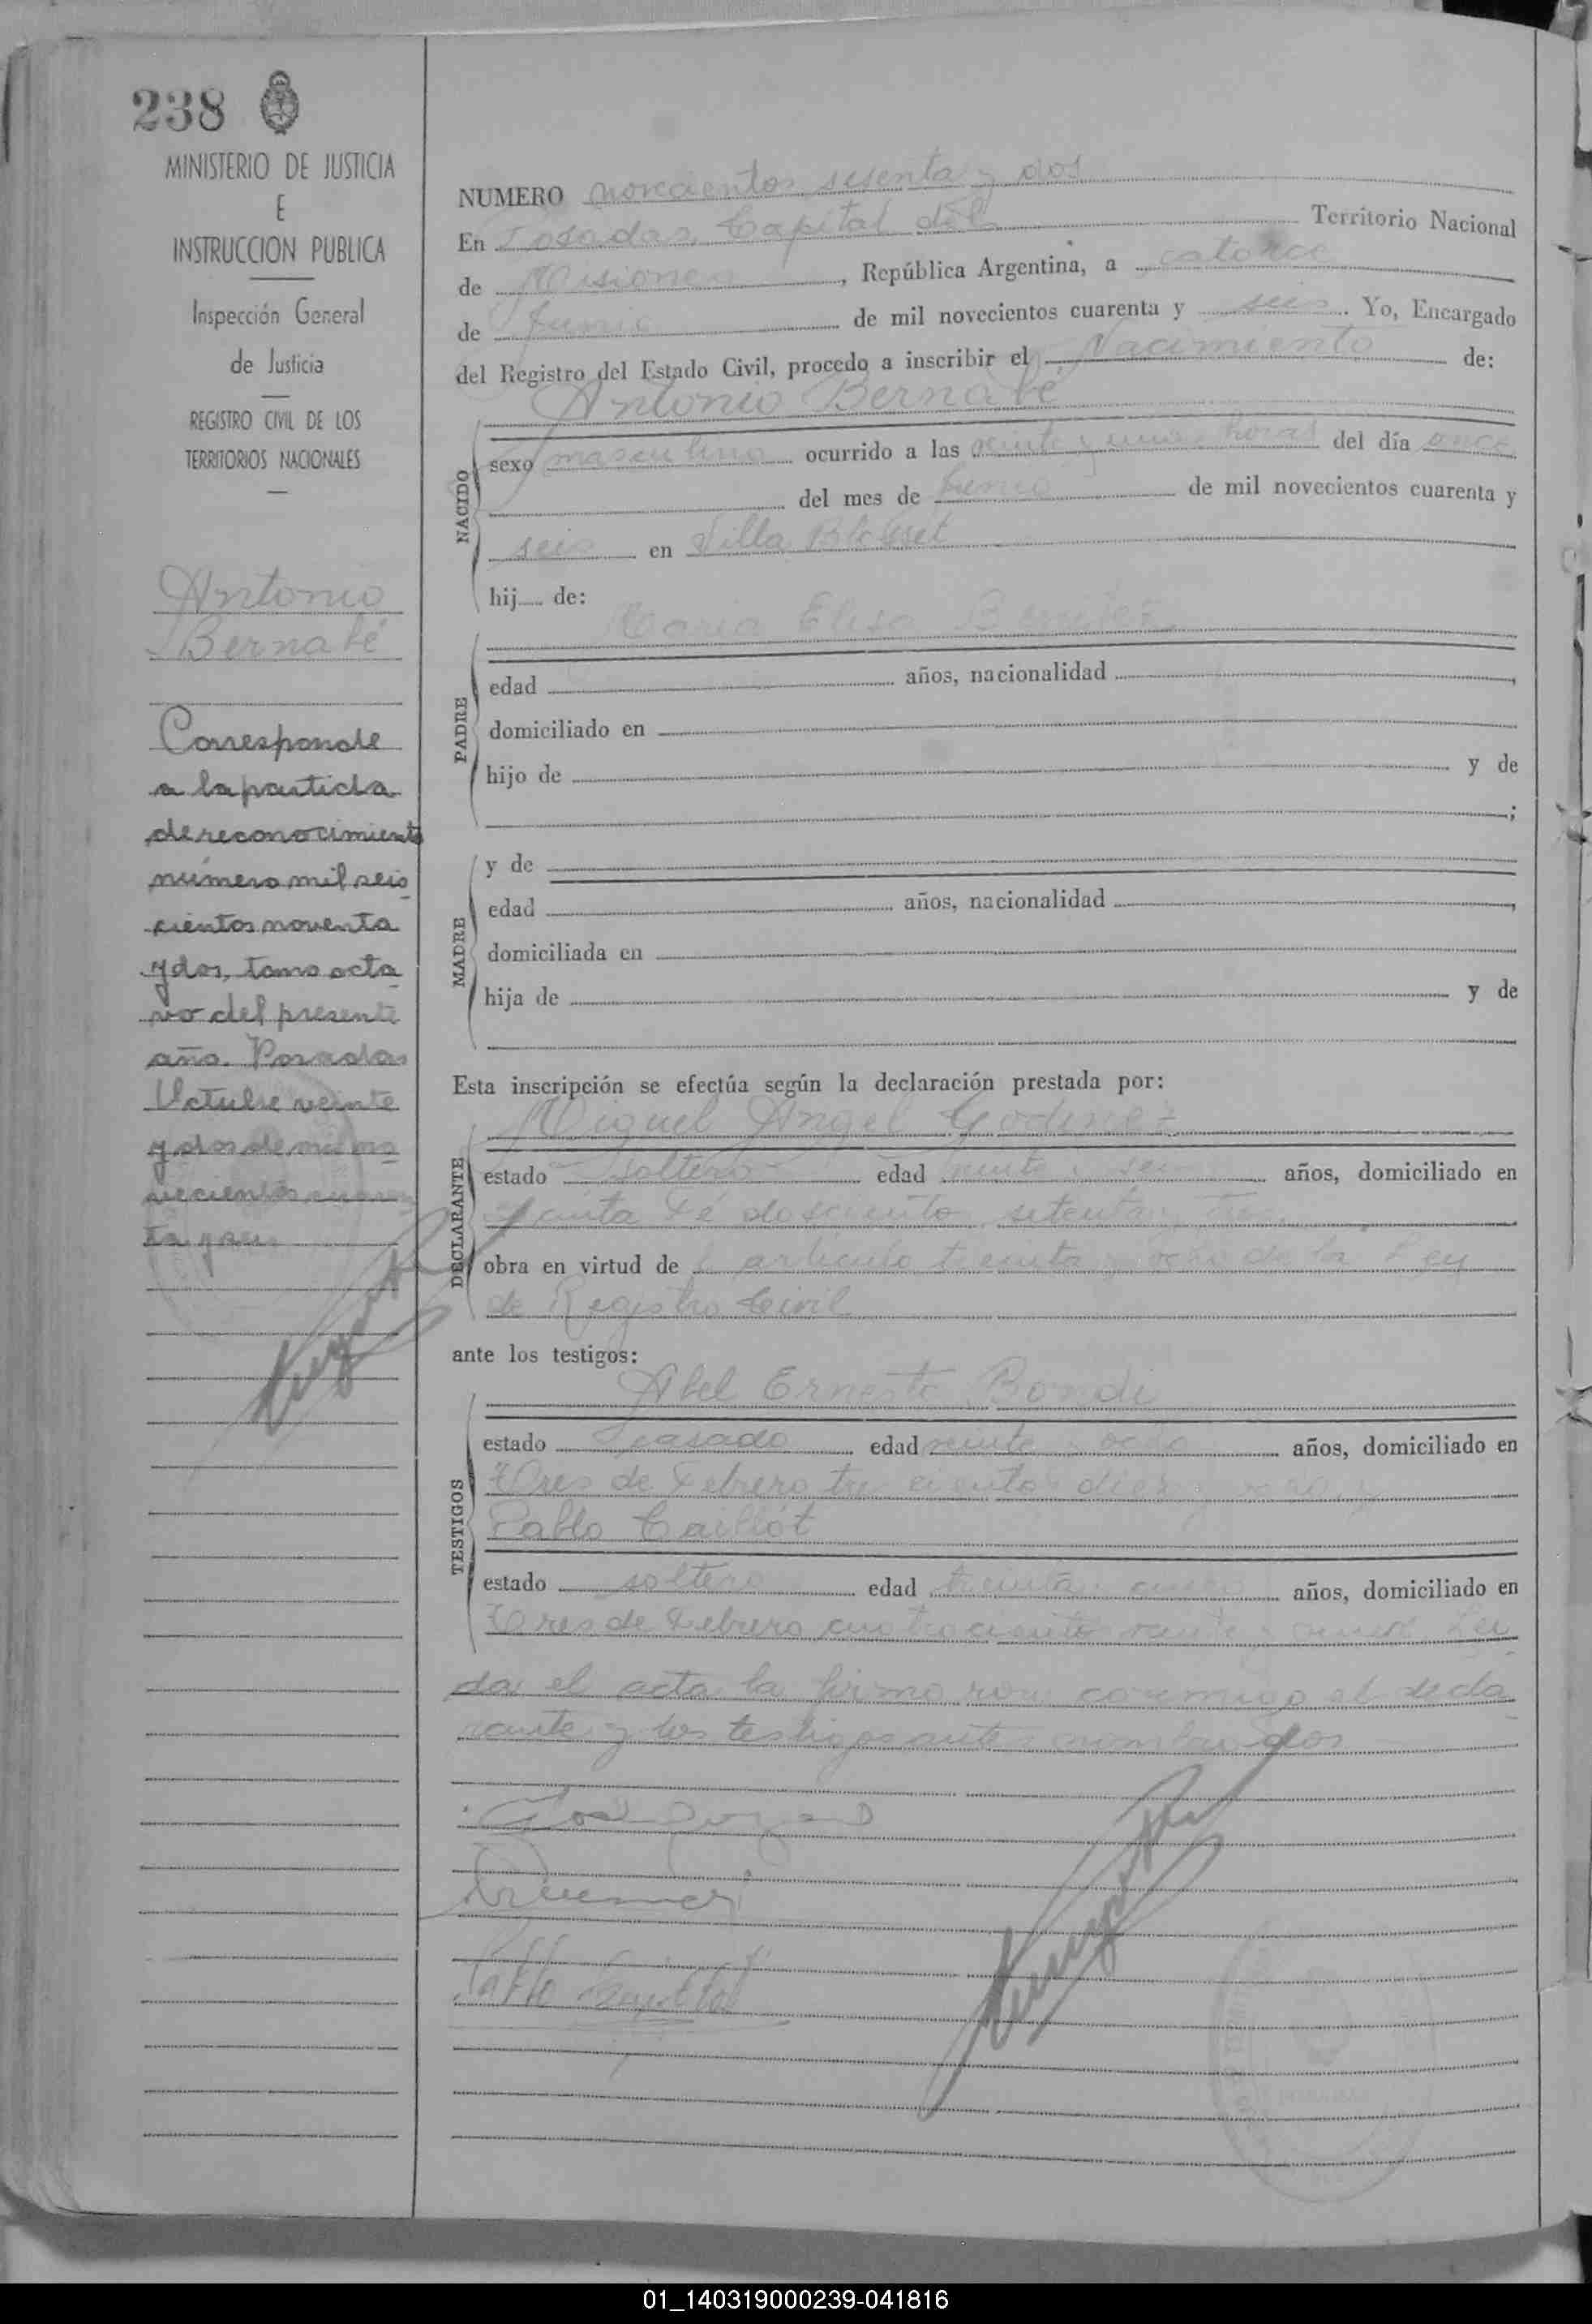 238
MINISTERIO DE JUSTICIA
E
INSTRUCCION PUBLICA
Inspección General
de Justicia
REGISTRO CIVIL DE LOS
TERRITORIOS NACIONALES
Antonio
Bernabé
Corresponde
a la partida
de reconocimiento
número mil seis
cientos noventa
y dos, tomo octa
vo del presente
año. Posadas
Octubre veinte
y dos de mil no
vecientos cuaren
ta y seis
NUMERO novecientos sesenta y dos
En Posadas, Capital del Territorio Nacional
de Misiones, República Argentina, a catorce
de Junio de mil novecientos cuarenta y seis. Yo, Encargado
del Registro del Estado Civil, procedo a inscribir el Nacimiento de:
Antonio Bernabé
NACIDO
sexo masculino ocurrido a las veinte y una horas del día once
del mes de Junio de mil novecientos cuarenta y
seis en Villa Blosset
hij de:
Maria Elisa Benitez
PADRE
edad años, nacionalidad ,
domiciliado en
hijo de y de
;
MADRE
y de
edad años, nacionalidad ,
domiciliada en
hija de y de
Esta inscripción se efectúa según la declaración prestada por:
Miguel Angel Godinez
DECLARANTE
estado soltero edad veinte y seis años, domiciliado en
Santa Fé doscientos setenta y tres
obra en virtud de artículo treinta y ocho de la Ley
de Registro Civil
ante los testigos:
Abel Ernesto Bonde
TESTIGOS
estado casado edad veinte y ocho años, domiciliado en
Tres de Febrero trescientos diez y
Pablo Caillot
estado soltero edad treinta y cinco años, domiciliado en
Tres de Febrero cuatrocientos veinte y Lei
da el acta la firmaron conmigo el decla
rante y los testigos antes nombrados
Pablo
01_140319000239-041816